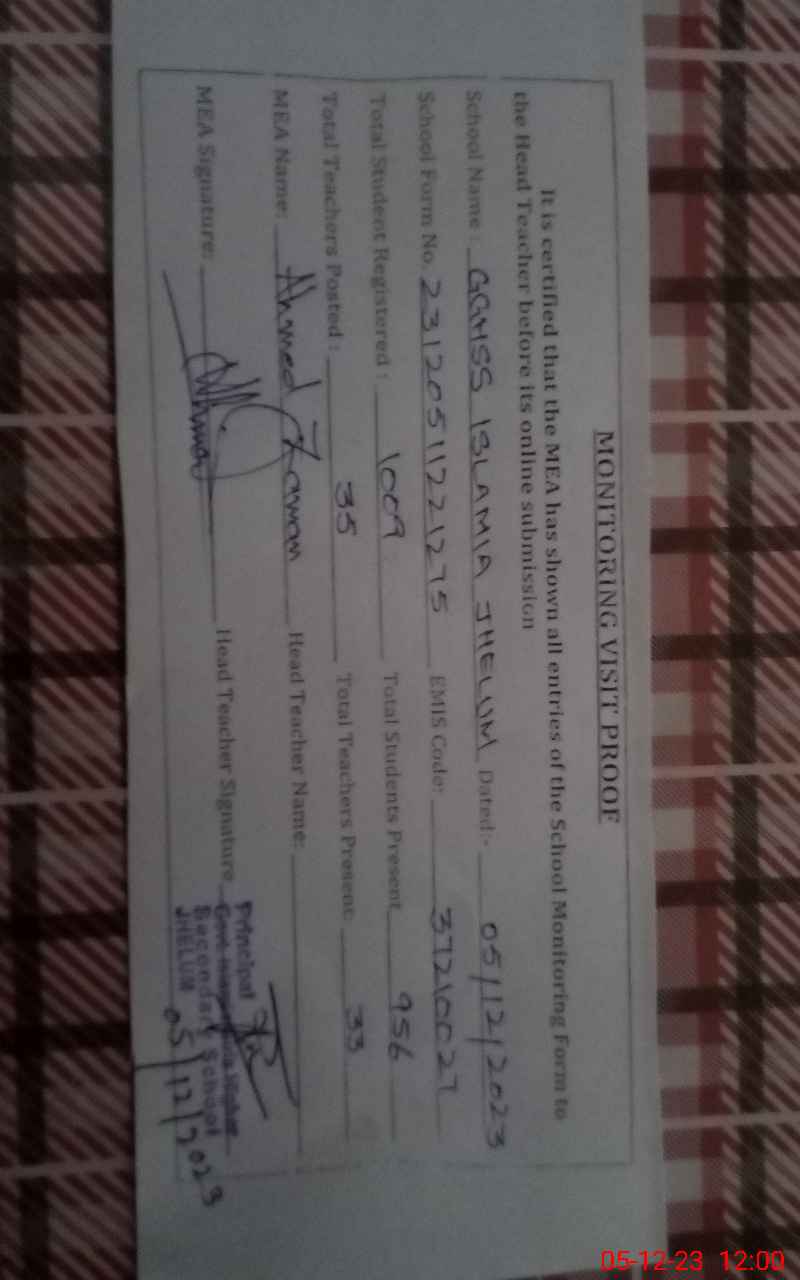 MONITORING VISIT PROOF
It is certified that the MEA has shown all entries of the School Monitoring Form to
the Head Teacher before its online submission
School Name : GGHSS ISLAMIA JHELUM Dated:- 05/12/2023
School Form No. 23120511221275 EMIS Code: 37210027
Total Student Registered : 1009 Total Students Present 956
Total Teachers Posted : 35 Total Teachers Present 33
MEA Name: Ahmed Head Teacher Name:
MEA Signature: Head Teacher Signature
Principal
Govt. Higher
Secondary School
JHELUM
05/12/2023
05-12-23 12:00